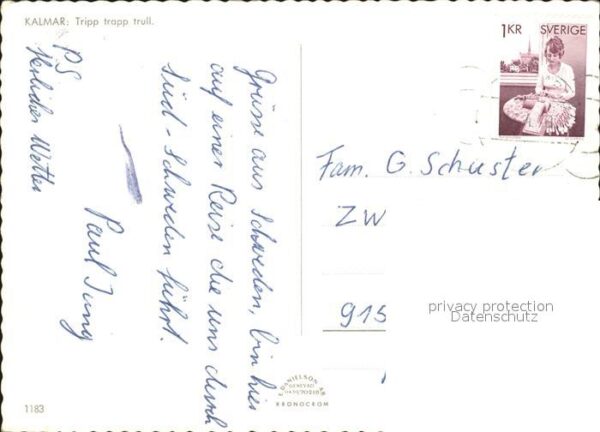 KALMAR: Tripp trapp trull.
Grüsse aus Schweden, bin hier
auf einer Reise die uns durch
Süd-Schweden führt.
Paul Jung
PS
Herliches Wetter
1 KR SVERIGE
Fam. G. Schuster
ZW
915
privacy protection
Datenschutz
DANIELSON AB
KRONOCROM
1183